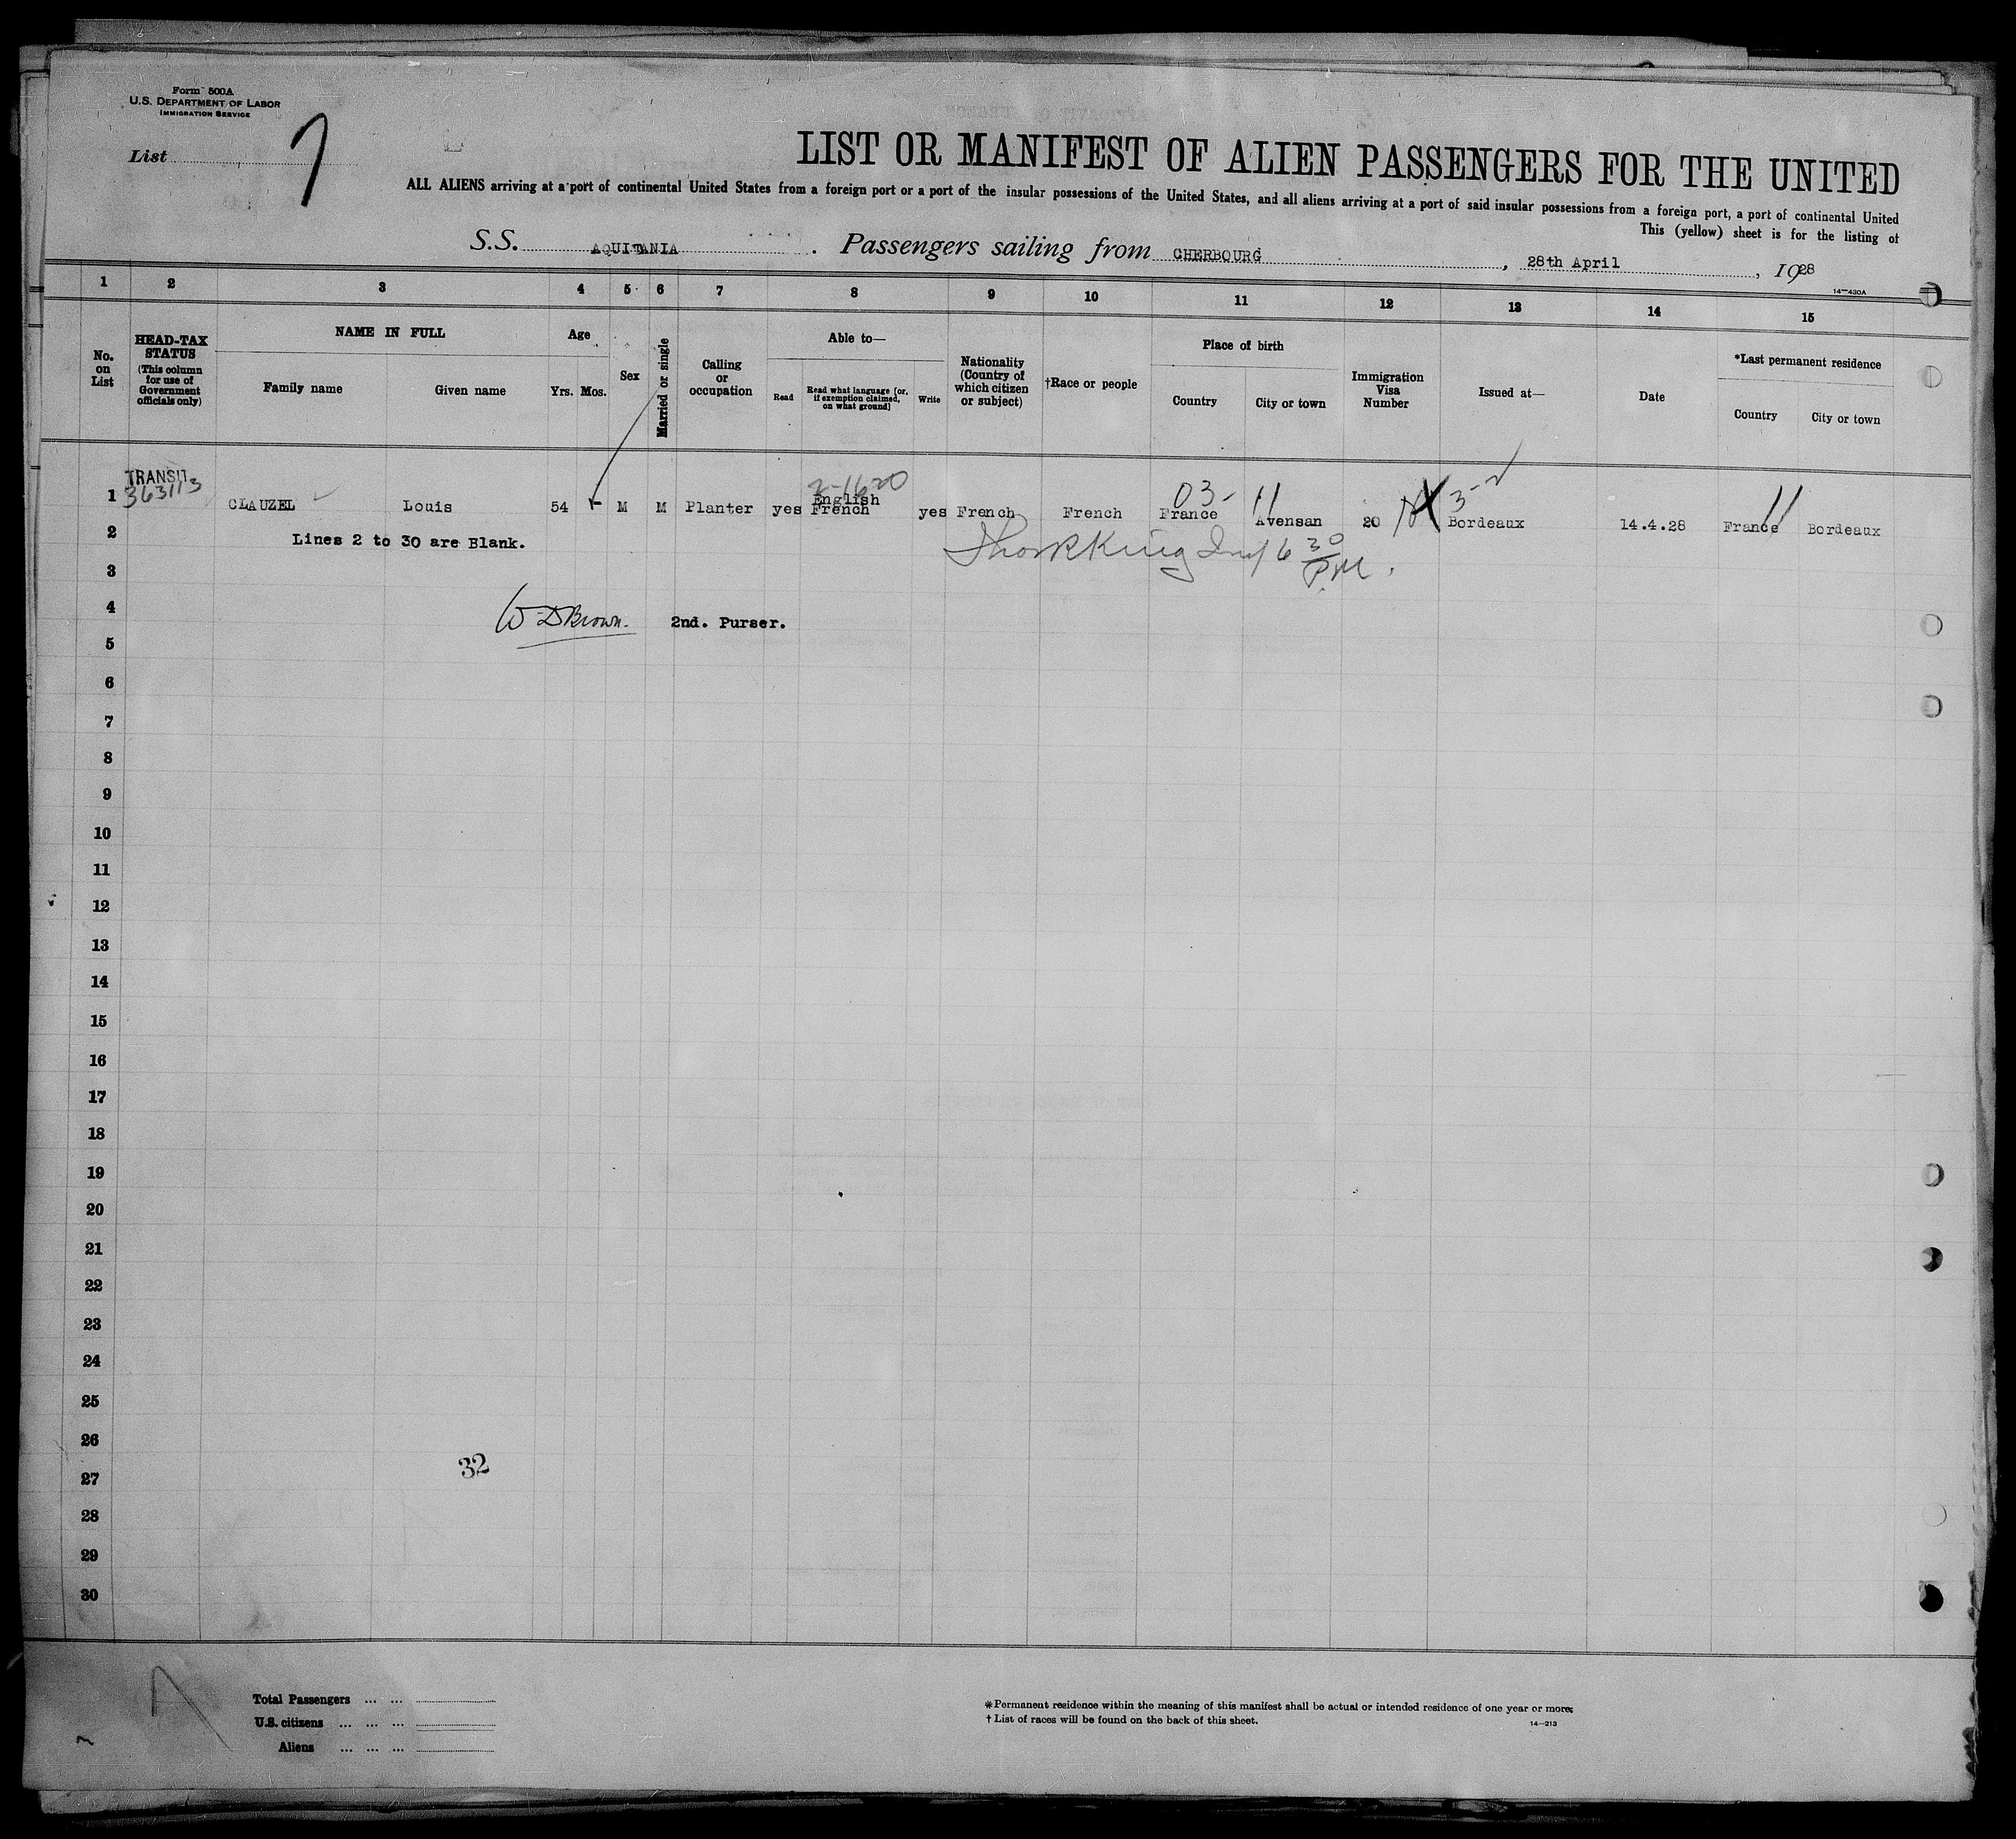 Form 500A
U.S. DEPARTMENT OF LABOR
IMMIGRATION SERVICE
List 7
LIST OR MANIFEST OF ALIEN PASSENGERS FOR THE UNITED
ALL ALIENS arriving at a port of continental United States from a foreign port or a port of the insular possessions of the United States, and all aliens arriving at a port of said insular possessions from a foreign port, a port of continental United
This (yellow) sheet is for the listing of
S.S. AQUITANIA. Passengers sailing from CHERBOURG, 28th April, 1928
14—430A
1 2 3 4 5 6 7 8 9 10 11 12 13 14 15
No. on List
HEAD-TAX STATUS (This column for use of Government officials only)
NAME IN FULL
Family name Given name
Age
Yrs. Mos.
Sex
Married or single
Calling or occupation
Able to—
Read Read what language [or, if exemption claimed, on what ground] Write
Nationality (Country of which citizen or subject)
†Race or people
Place of birth
Country City or town
Immigration Visa Number
Issued at—
Date
*Last permanent residence
Country City or town
TRANSIT
363113
2-1620
03- 11 3-2 11
1 CLAUZEL Louis 54 M M Planter yes English French yes French French France Avensan 20 Bordeaux 14.4.28 France Bordeaux
2 Lines 2 to 30 are Blank.
King 6 30 P.M.
3
4 W D Brown. 2nd. Purser.
5
6
7
8
9
10
11
12
13
14
15
16
17
18
19
20
21
22
23
24
25
26
32
27
28
29
30
Total Passengers ... ...
U.S. citizens ... ... ...
Aliens ... ... ...
*Permanent residence within the meaning of this manifest shall be actual or intended residence of one year or more.
† List of races will be found on the back of this sheet.
14—213